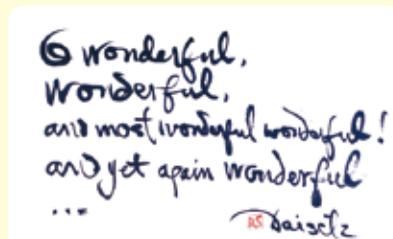 O wonderful,
wonderful,
and most wonderful wonderful!
and yet again wonderful
...
Daisetz